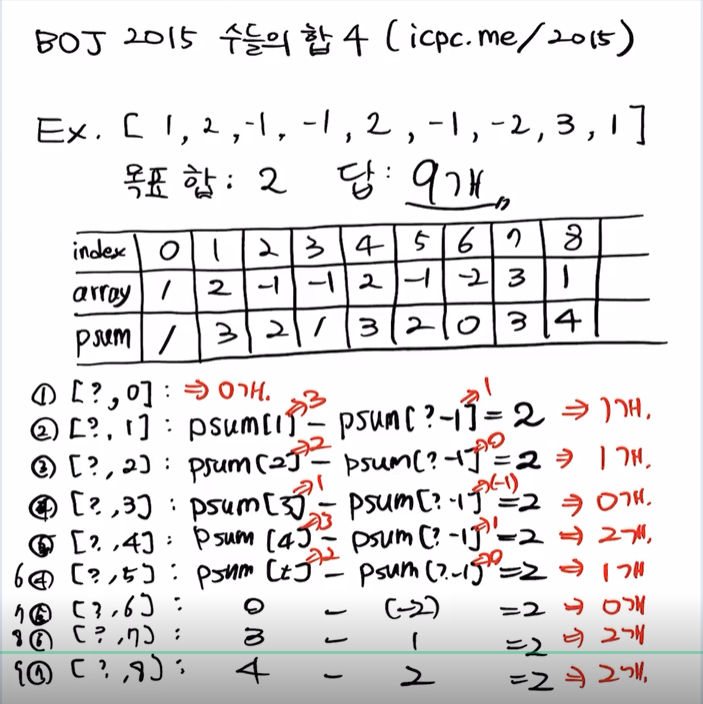 BOJ 2015 수들의 합 4 (icpc.me/2015)
Ex. [ 1, 2, -1, -1, 2, -1, -2, 3, 1 ]
목표 합: 2 답: 9개
index 0 1 2 3 4 5 6 7 8
array 1 2 -1 -1 2 -1 -2 3 1
psum 1 3 2 1 3 2 0 3 4
① [?,0] : ⇒ 0개.
② [?,1] : psum[1]⇒3 - psum[?-1]⇒1 = 2 ⇒ 1개.
③ [?,2] : psum[2]⇒2 - psum[?-1]⇒0 = 2 ⇒ 1개.
④ [?,3] : psum[3]⇒1 - psum[?-1]⇒(-1) = 2 ⇒ 0개.
⑤ [?,4] : psum[4]⇒3 - psum[?-1]⇒1 = 2 ⇒ 2개.
6 [?,5] : psum[t]⇒2 - psum[?-1]⇒0 = 2 ⇒ 1개
7 [?,6] : 0 - (-2) = 2 ⇒ 0개
8 [?,7] : 3 - 1 = 2 ⇒ 2개
9 [?,8] : 4 - 2 = 2 ⇒ 2개.